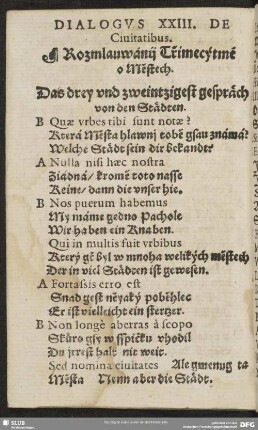 DIALOGVS XXIII. DE
Ciuitatibus.
¶ Rozmlauwánij Třimecýtmé
o Městech.
Das drey vnd zweintzigest gespräch
von den Städten.
B Quæ vrbes tibi sunt notæ?
Která Města hlawnj tobě gsau známá?
Welche Städt sein dir bekandt?
A Nulla nisi hæc nostra
Žiadná / kromě toto nasse
Keine / dann die vnser hie.
B Nos puerum habemus
My máme gedno Pachole
Wir haben ein Knaben.
Qui in multis fuit vrbibus
Který gē byl w mnoha welikých městech
Der in viel Städten ist gewesen.
A Fortassis erro est
Snad gest něyaký poběhlec
Er ist vielleicht ein sterger.
B Non longè aberras à scopo
Skůro gsy w sspičku vhodil
Du jrrest halt nit weit.
Sed nomina ciuitates Ale gmenug ta
Města Nenn aber die Städt.
SLUB
DFG